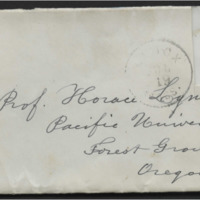 Prof. Horace Lyn
Pacific Univer
Forest Gro
Orego